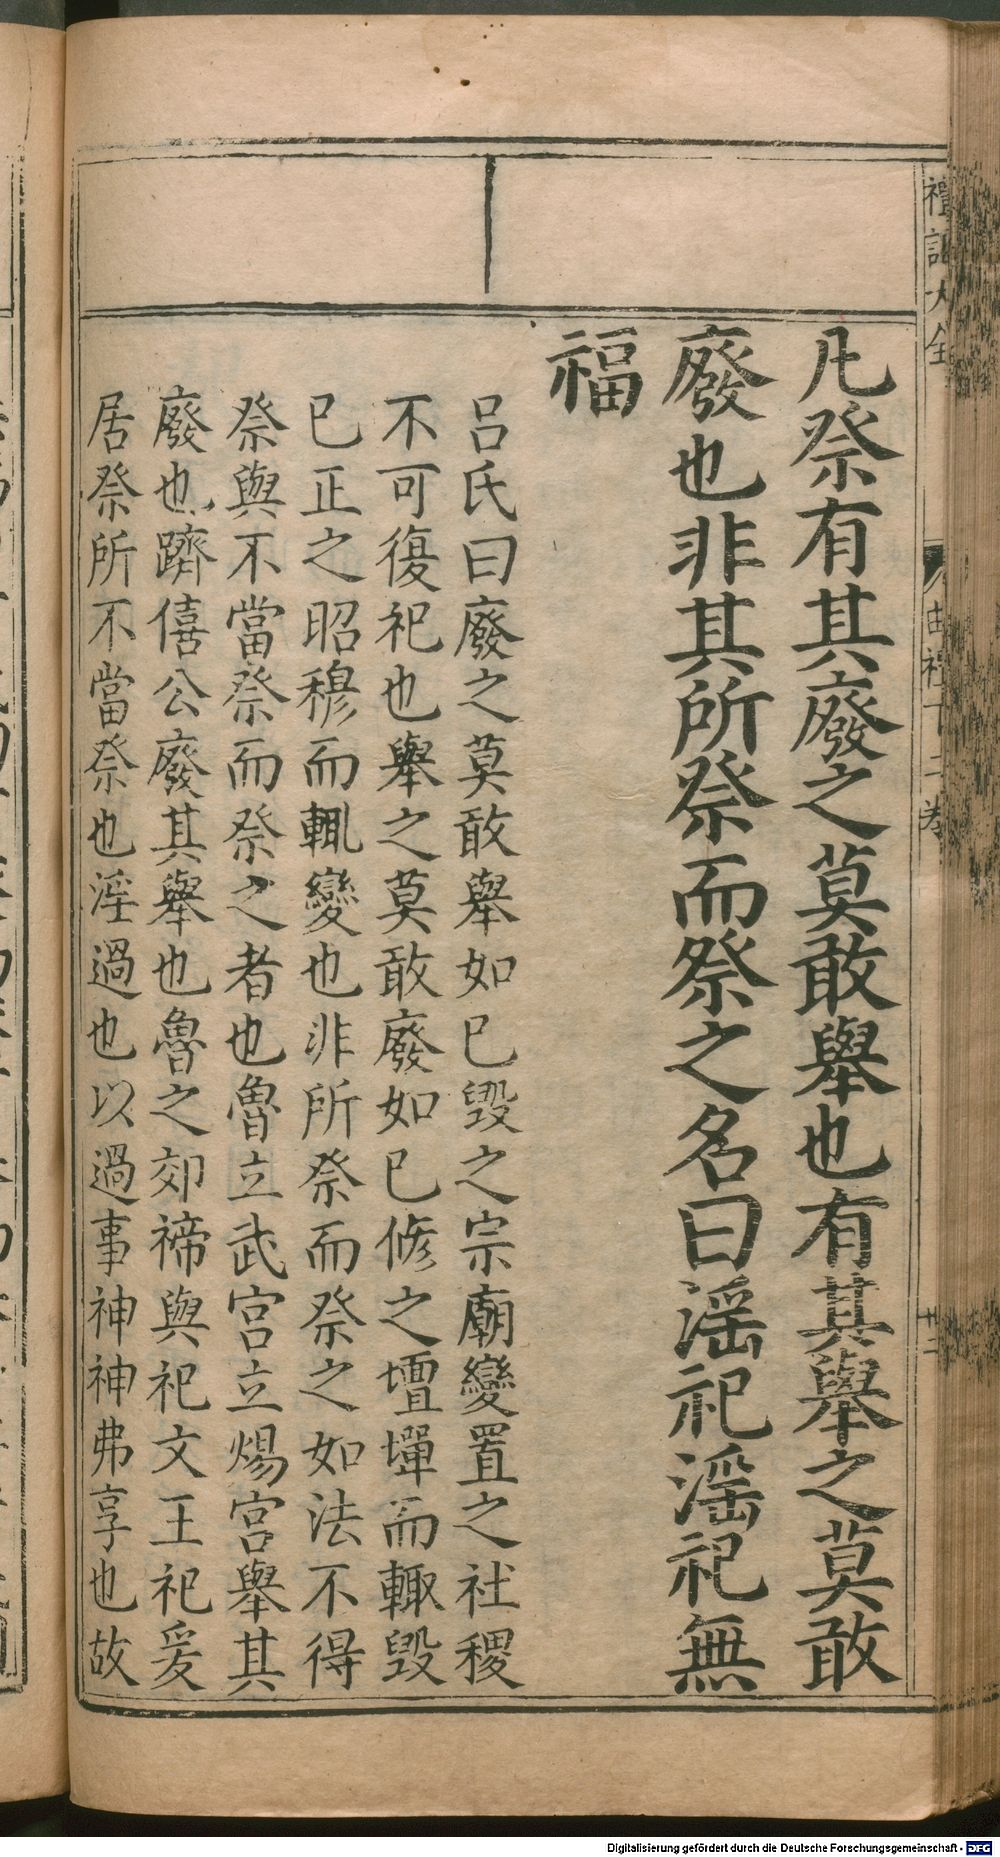 凡祭有其廢之莫敢舉也有其舉之莫敢
廢也非其所祭而祭之名曰淫祀淫祀無
福
呂氏曰廢之莫敢舉如已毀之宗廟變置之社稷
不可復祀也舉之莫敢廢如已脩之壇墠而輙毀
已正之昭穆而輒變也非所祭而祭之如法不得
祭與不當祭而祭之者也魯立武宮立煬宮舉其
廢也躋僖公廢其舉也魯之郊禘與祀文王祀爰
居祭所不當祭也淫過也以過事神神弗享也故
禮記大全
曲禮下二卷
廿二
Digitalisierung gefördert durch die Deutsche Forschungsgemeinschaft - DFG